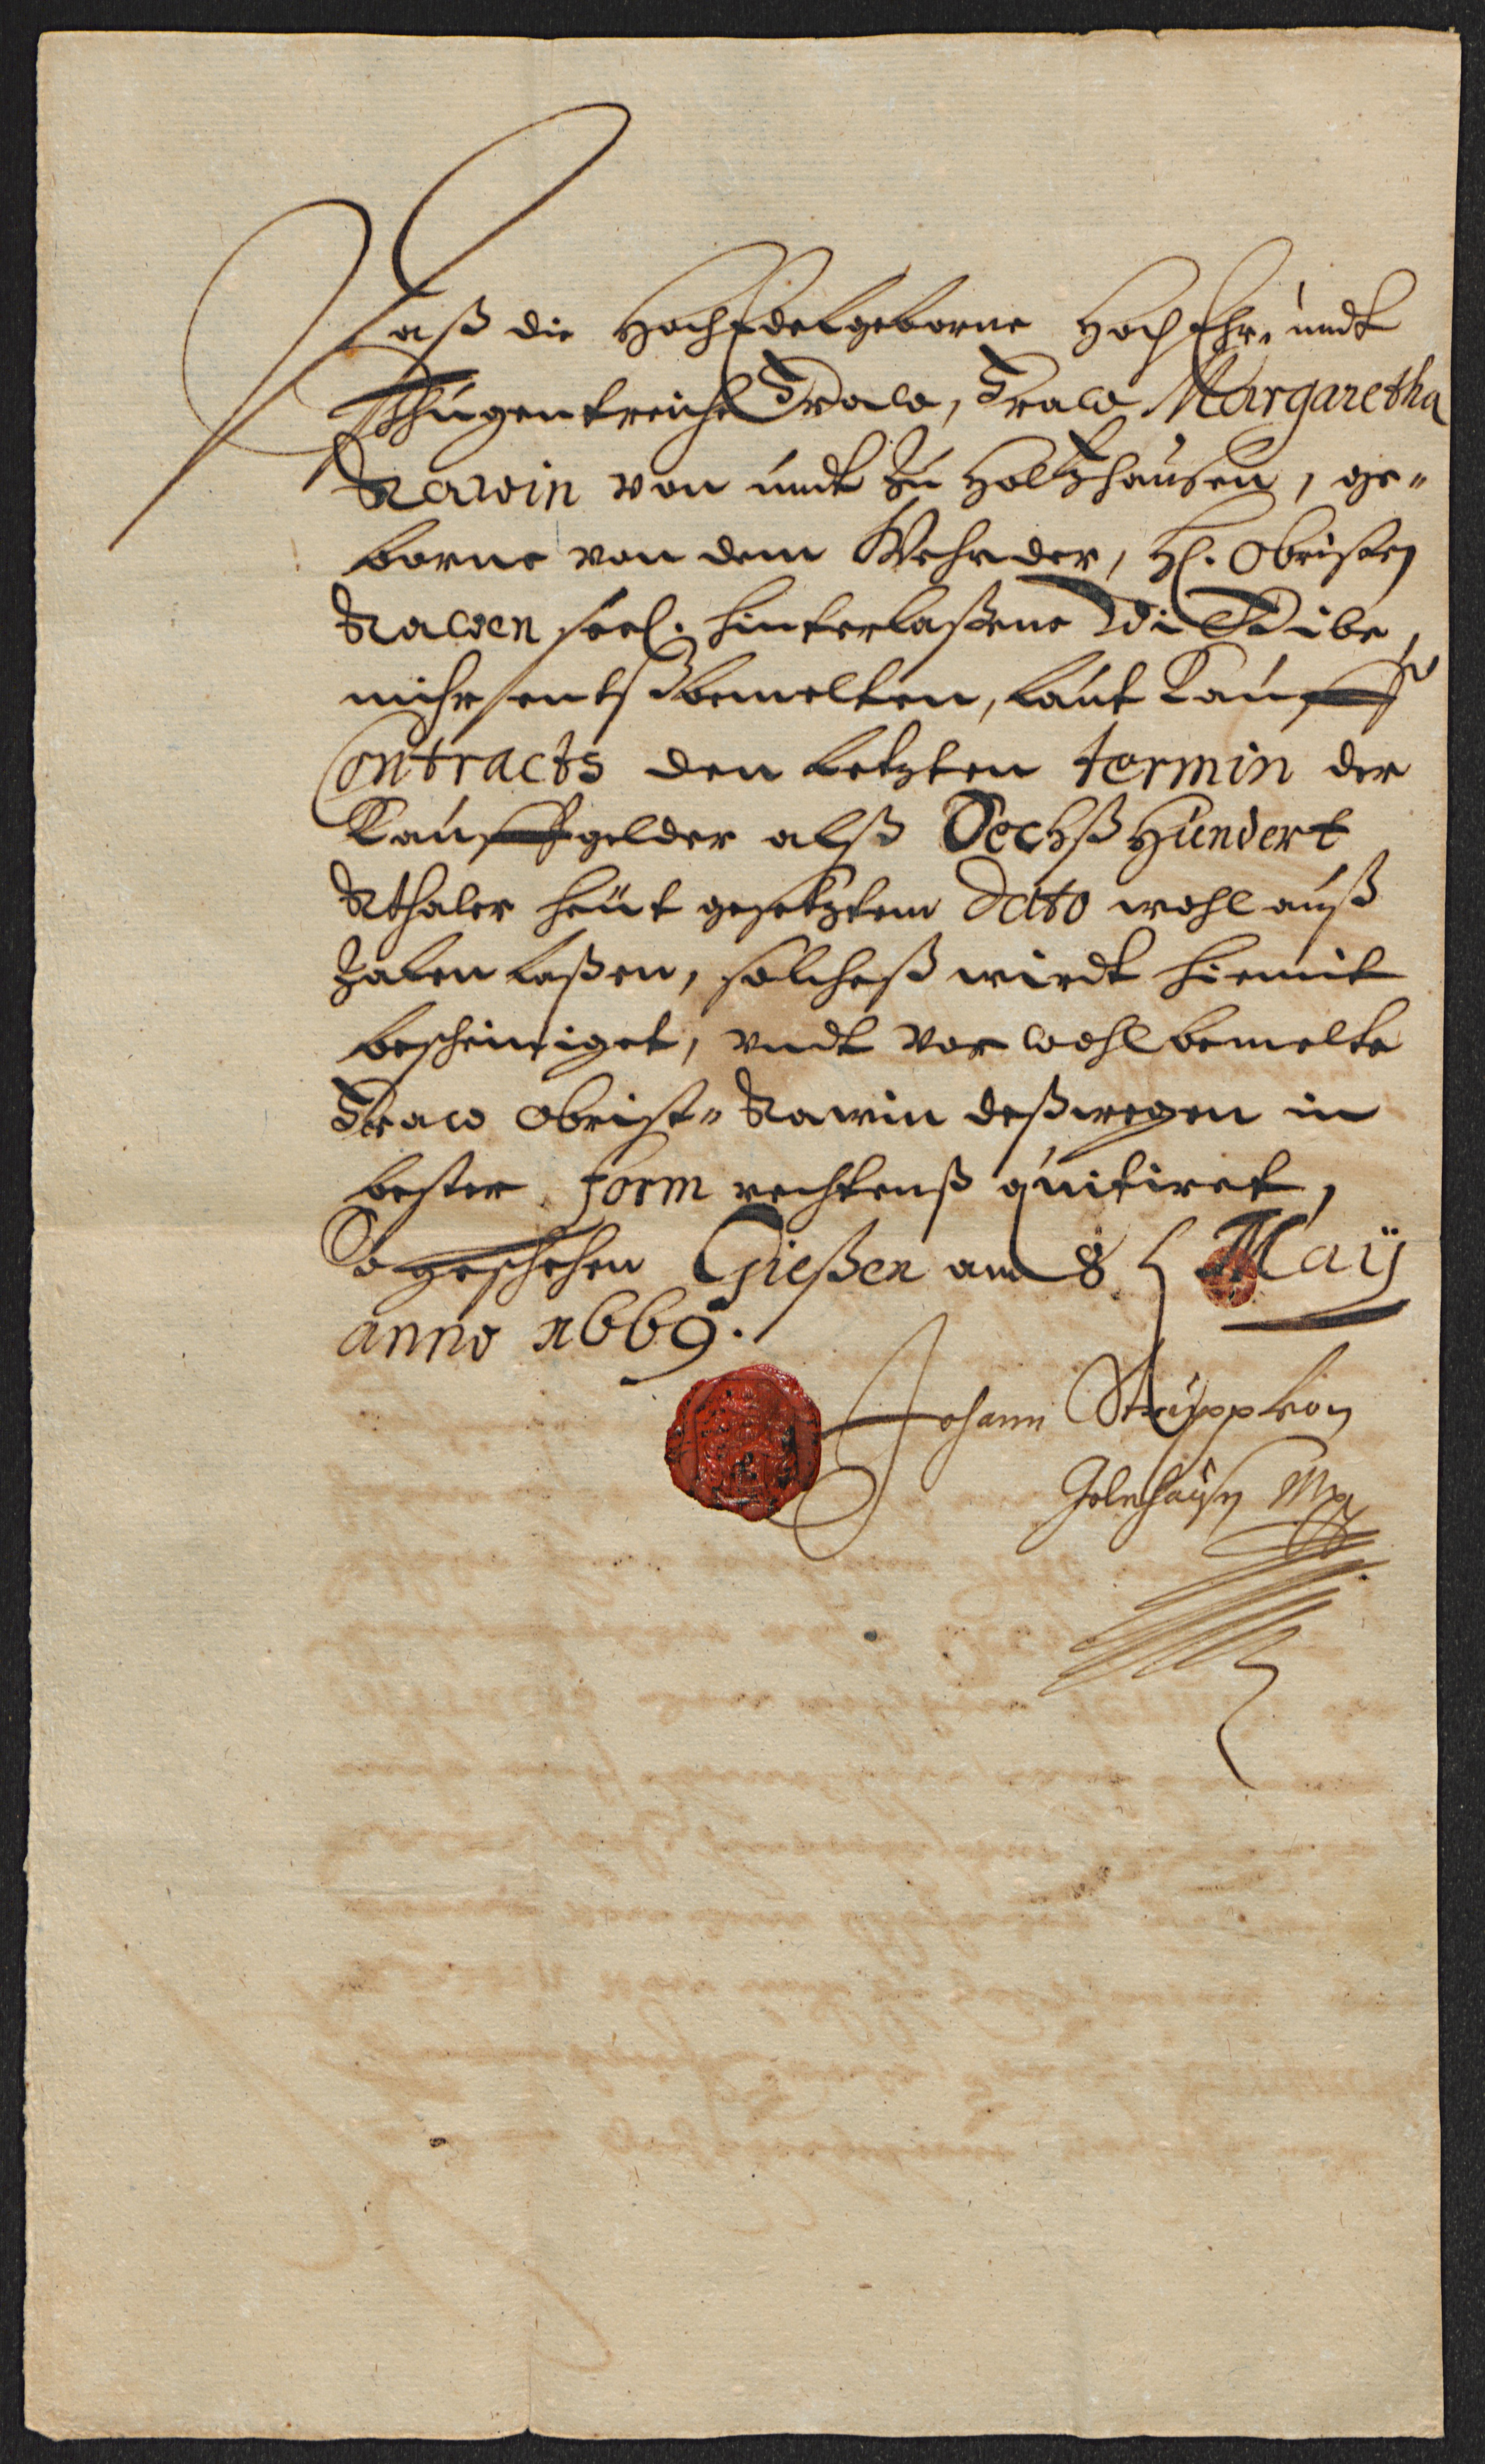 Daß die HochEdelgeborne HochEhr- undt
Thugentreiche Fraw, Fraw Margaretha
Rawin von undt zu Holtzhausen, ge-
borne von dem Wehrder, H. Obristen
Rawen seel. hinterlaßene Wittibe,
mihr entsbemelten, laut Kauff
Contracts den letzten termin der
Kauffgelder alß Sechß Hundert
Rthaler heut gesetztem dato wohl auß
zalen laßen, solcheß wirdt hiemit
bescheiniget, undt vor wohlbemelte
Fraw Obrist- Rawin deßwegen in
bester form rechtenß quitiret,
So geschehen Gießen am 8 Maij
anno 1669.
Johann Strupp von
Gelnhausen Mp